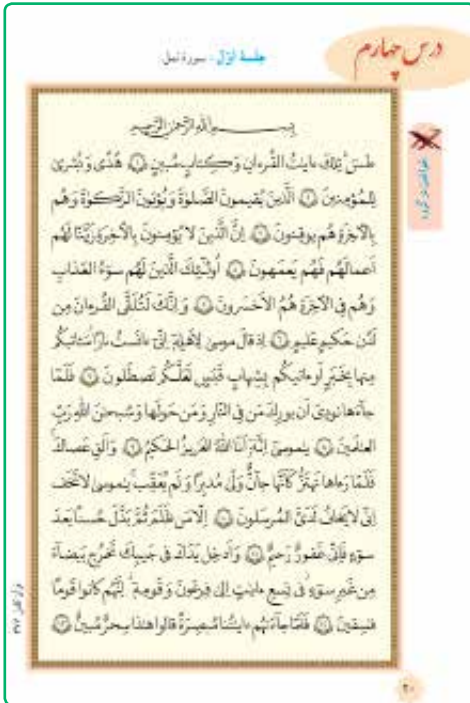 درس چهارم
جلسهٔ اوّل : سورهٔ نمل
بِسمِ اللهِ الرَّحمٰنِ الرَّحیمِ
طسٓ تِلكَ ءایٰتُ القُرءانِ وَ كِتابٍ مُبینٍ ١ هُدًی وَ بُشریٰ
لِلمُؤمِنینَ ٢ اَلَّذینَ یُقیمونَ الصَّلوٰةَ وَ یُؤتونَ الزَّكوٰةَ وَ هُم
بِالآخِرَةِ هُم یوقِنونَ ٣ اِنَّ الَّذینَ لا یُؤمِنونَ بِالآخِرَةِ زَیَّنّا لَهُم
اَعمالَهُم فَهُم یَعمَهونَ ٤ اُولٰئِكَ الَّذینَ لَهُم سوٓءُ العَذابِ
وَ هُم فِی الآخِرَةِ هُمُ الاَخسَرونَ ٥ وَ اِنَّكَ لَتُلَقَّی القُرءانَ مِن
لَدُن حَكیمٍ عَلیمٍ ٦ اِذ قالَ موسیٰ لِاَهلِهٖٓ اِنّیٓ ءانَستُ نارًا سَـٔاتیكُم
مِنها بِخَبَرٍ اَو ءاتیكُم بِشِهابٍ قَبَسٍ لَعَلَّكُم تَصطَلونَ ٧ فَلَمّا
جآءَها نودِیَ اَن بورِكَ مَن فِی النّارِ وَ مَن حَولَها وَ سُبحٰنَ اللهِ رَبِّ
العٰلَمینَ ٨ یٰموسیٰٓ اِنَّهٗٓ اَنَا اللهُ العَزیزُ الحَكیمُ ٩ وَ اَلقِ عَصاكَ
فَلَمّا رَءاها تَهتَزُّ كَاَنَّها جآنٌّ وَلّیٰ مُدبِرًا وَ لَم یُعَقِّب یٰموسیٰ لا تَخَف
اِنّی لا یَخافُ لَدَیَّ المُرسَلونَ ١٠ اِلّا مَن ظَلَمَ ثُمَّ بَدَّلَ حُسنًا بَعدَ
سوٓءٍ فَاِنّی غَفورٌ رَحیمٌ ١١ وَ اَدخِل یَدَكَ فی جَیبِكَ تَخرُج بَیضآءَ
مِن غَیرِ سوٓءٍ فی تِسعِ ءایٰتٍ اِلیٰ فِرعَونَ وَ قَومِهٖٓ اِنَّهُم كانوا قَومًا
فٰسِقینَ ١٢ فَلَمّا جآءَتهُم ءایٰتُنا مُبصِرَةً قالوا هٰذا سِحرٌ مُبینٌ ١٣
٢٠